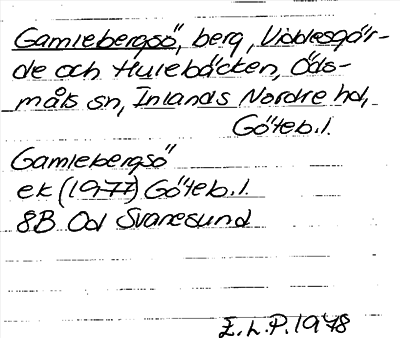 Gamlebergsö, berg, Vidblesgår-
de och Hulebäcken, Öds-
måls sn, Inlands Nordre hd,
Göteb.l.
Gamlebergsö
ek (1977) Göteb.l.
8B Od Svanesund
E.L.P. 1978